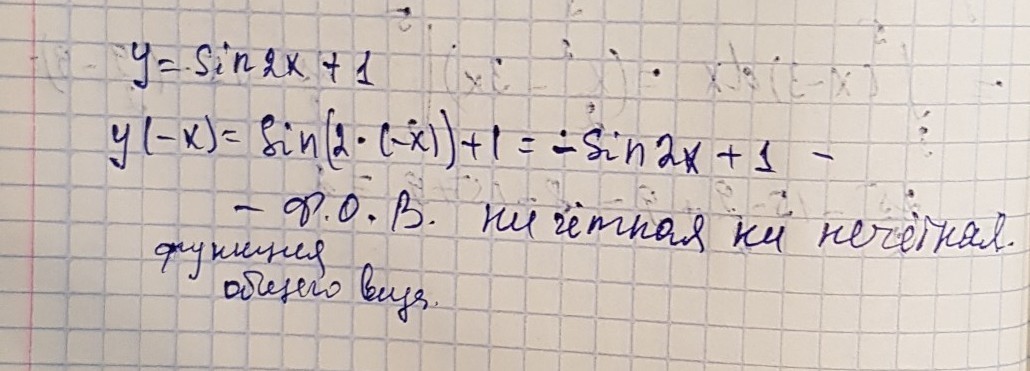 y = sin2x + 1
y(-x) = sin(2·(-x))+1 = -sin2x + 1 -
- Ф.О.В. ни чётная ни нечётная.
функция
общего вида.